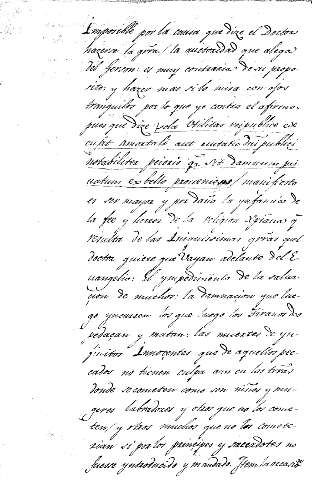 Imposible por la causa que dize el Doctor
hazerse la grra/ la auctoridad que alega
del Gerson: es muy contraria de su propo
sito: y hazer mas si lo mira con ojos
tranquilos por lo que yo contra el afirmo,
pues que dize sola Utilitas reipublice ex
cusat aut publici
notabiliter peioris qz sit damnum pri
vatum ex bello proveniens/ manifiesto
es ser mayor y peor daño la ynfamia de
la fee y horror de la religion Xpiana q
resulta de las Iniquissimas grras quel
doctor quiere que vayan adelante del E
uangelio: el ympedimento de la salua
çion de muchos: la damnaçion que lue
go yncurren los que luego los tiranos des
pedaçan y matan: las muertes de yn
finitos Innocentes que de aquellos pec
cados no tienen culpa aun en las trras
donde se cometen como son niños y mu
geres labradores y otros que no los come
ten/ y otros muchos que no los comete
rian si por los prinçipes y sacerdotes no
fuese yntroduzido y mandado. Item la ocasiõ